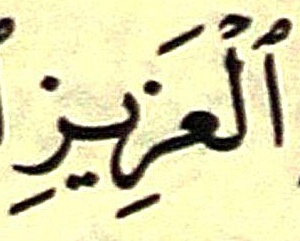 ٱلْعَزِيزِ